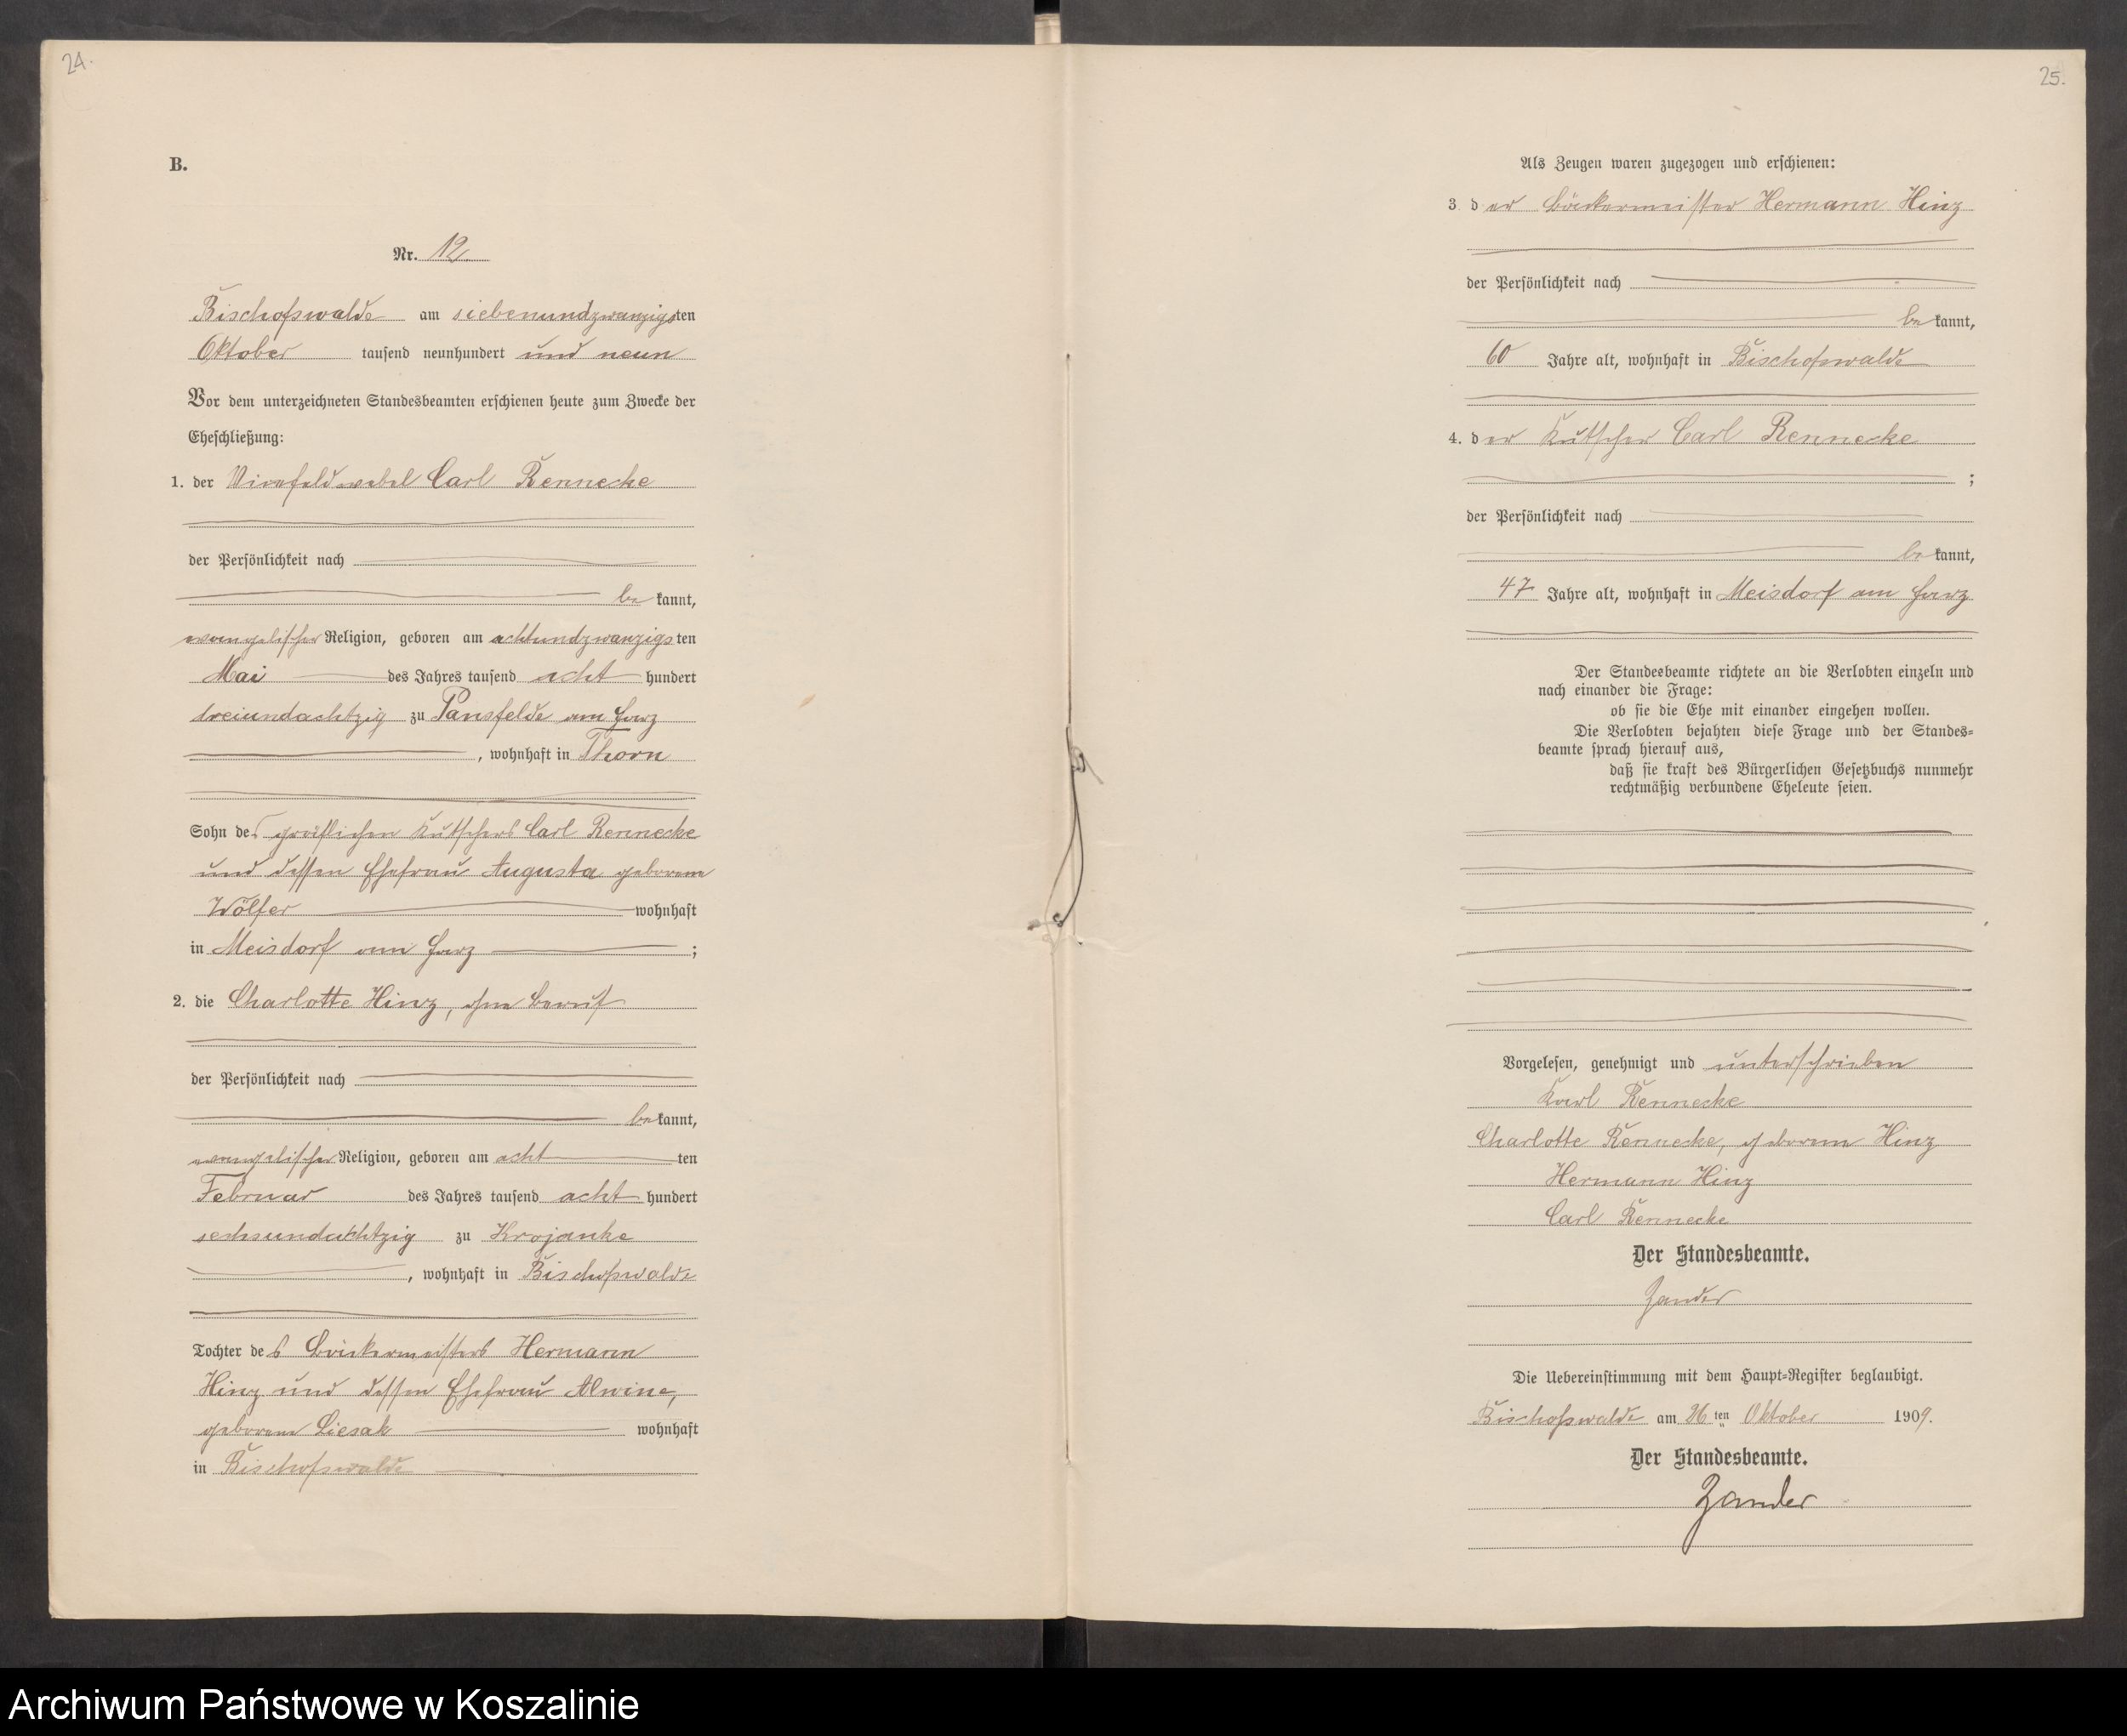 24.
B.
Nr. 12
Bischofswalde am siebenundzwanzigsten
Oktober tausend neunhundert und neun
Vor dem unterzeichneten Standesbeamten erschienen heute zum Zwecke der
Eheschließung:
1. der Vizefeldwebel Carl Rennecke
der Persönlichkeit nach
be kannt,
evangelischer Religion, geboren am achtundzwanzigsten
Mai des Jahres tausend acht hundert
dreiundachtzig zu Pansfelde am Harz
, wohnhaft in Thorn
Sohn des gräflichen Kutschers Carl Rennecke
und dessen Ehefrau Augusta geborene
Wölfer wohnhaft
in Meisdorf am Harz ;
2. die Charlotte Hinz, ohne Beruf
der Persönlichkeit nach
be kannt,
evangelischer Religion, geboren am acht ten
Februar des Jahres tausend acht hundert
sechsundachtzig zu Krojanke
, wohnhaft in Bischofswalde
Tochter des Bäckermeisters Hermann
Hinz und dessen Ehefrau Alwine,
geborene Liesak wohnhaft
in Bischofswalde
25.
Als Zeugen waren zugezogen und erschienen:
3. der Bäckermeister Hermann Hinz
der Persönlichkeit nach
be kannt,
60 Jahre alt, wohnhaft in Bischofswalde
4. der Kutscher Carl Rennecke
;
der Persönlichkeit nach
be kannt,
47 Jahre alt, wohnhaft in Meisdorf am Harz
Der Standesbeamte richtete an die Verlobten einzeln und
nach einander die Frage:
ob sie die Ehe mit einander eingehen wollen.
Die Verlobten bejahten diese Frage und der Standes-
beamte sprach hierauf aus,
daß sie kraft des Bürgerlichen Gesetzbuchs nunmehr
rechtmäßig verbundene Eheleute seien.
Vorgelesen, genehmigt und unterschrieben
Karl Rennecke
Charlotte Rennecke, geborene Hinz
Hermann Hinz
Carl Rennecke
Der Standesbeamte.
Zander
Die Uebereinstimmung mit dem Haupt-Register beglaubigt.
Bischofswalde am 26 ten Oktober 1909.
Der Standesbeamte.
Zander
Archiwum Państwowe w Koszalinie